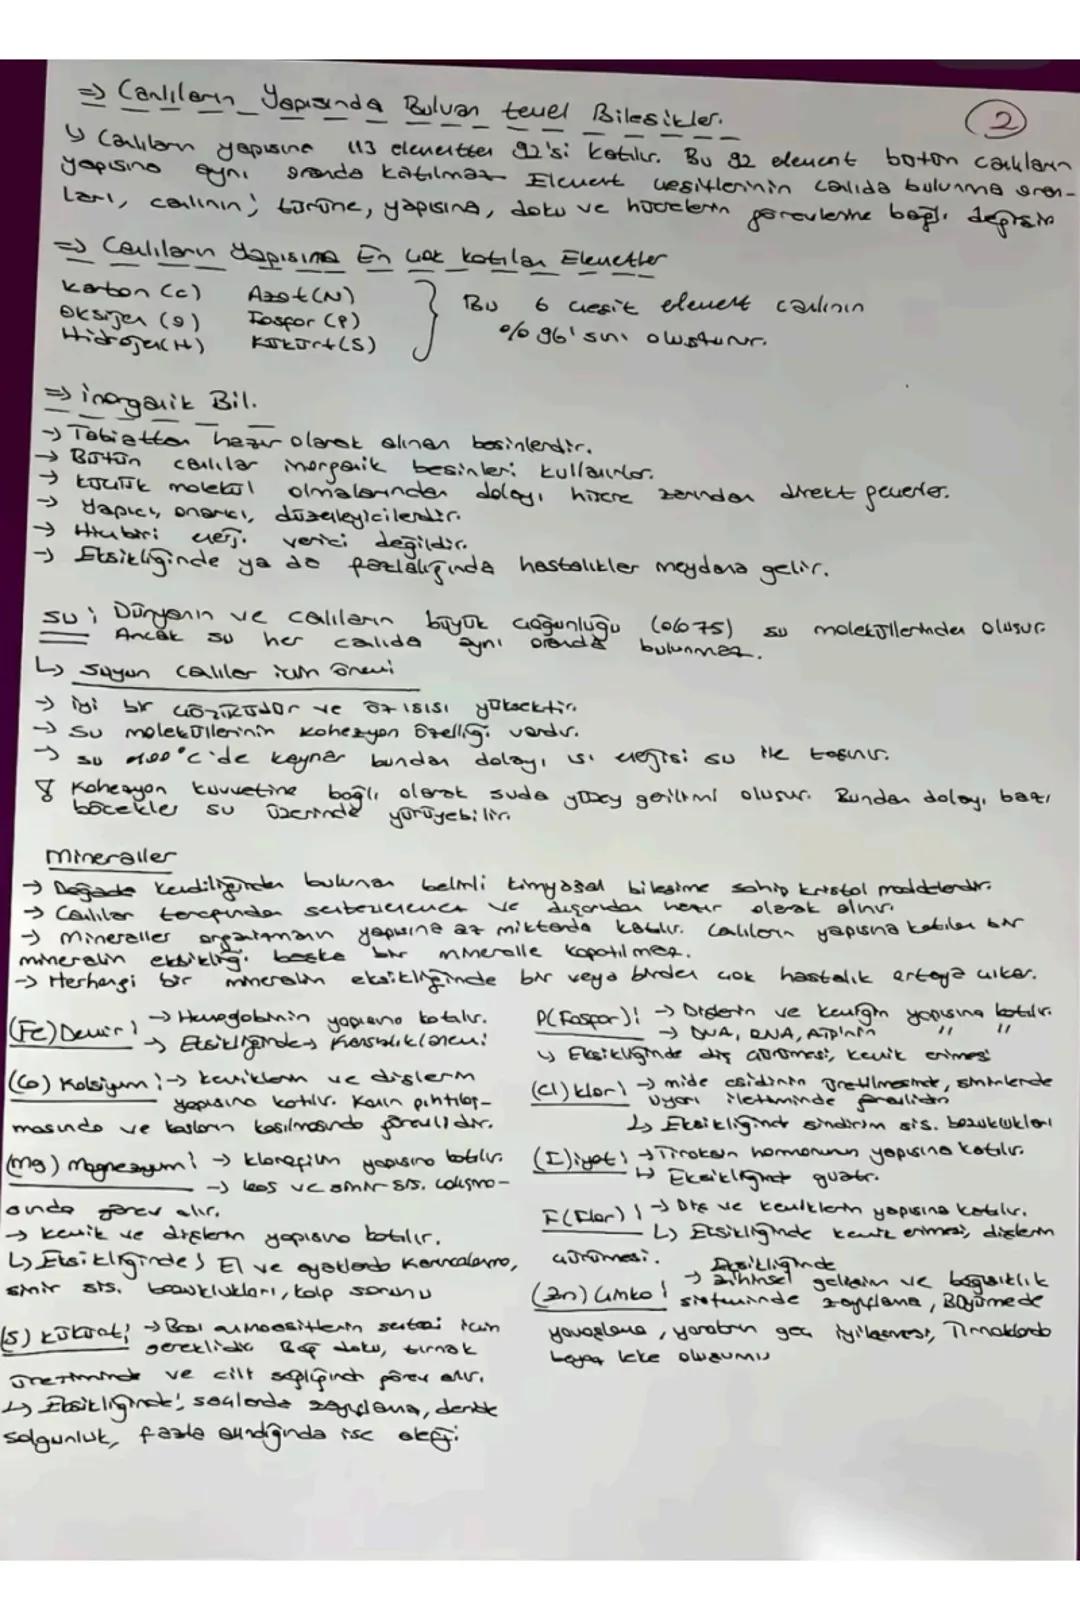 ⇒ Canlıların Yapısında Bulunan temel Bileşikler.
2
↳ Canlıların yapısına 113 elementten 92'si katılır. Bu 92 element bütün canlıların
yapısına aynı oranda katılmaz Element çeşitlerinin canlıda bulunma oran-
ları, canlının; türüne, yapısına, doku ve hücrelerin görevlerine bağlı değişir
⇒ Canlıların Yapısına En çok katılan Elementler
Karbon (C) Azot (N)
Oksijen (O) Fosfor (P)
Hidrojen (H) Kükürt (S)
Bu 6 çeşit element canlının
%96'sını oluşturur.
⇒ inorganik Bil.
→ Tabiattan hazır olarak alınan besinlerdir.
→ Bütün canlılar inorganik besinleri kullanırlar.
→ küçük molekül olmalarından dolayı hücre zarından direkt geçerler.
→ Yapıcı, onarıcı, düzenleyicilerdir.
→ Hiçbiri enerji verici değildir.
→ Eksikliğinde ya da fazlalığında hastalıklar meydana gelir.
su: Dünyanın ve canlıların büyük çoğunluğu (%75) su moleküllerinden oluşur.
Ancak su her canlıda aynı oranda bulunmaz.
↳ Suyun canlılar için önemi
→ iyi bir çözücüdür ve öz ısısı yüksektir.
→ Su moleküllerinin kohezyon özelliği vardır.
→ su 100°C'de kaynar bundan dolayı ısı enerjisi su ile taşınır.
Kohezyon kuvvetine bağlı olarak suda yüzey gerilimi oluşur. Bundan dolayı bazı
böcekler su üzerinde yürüyebilir.
Mineraller
→ Doğada kendiliğinden bulunan belirli kimyasal bileşime sahip kristal maddelerdir.
→ Canlılar tarafından sentezlenmez ve dışarıdan hazır olarak alınır.
→ Mineraller organizmanın yapısına az miktarda katılır. Canlıların yapısına katılan bir
mineralin eksikliği başka bir mineralle kapatılmaz.
→ Herhangi bir mineralin eksikliğinde bir veya birden çok hastalık ortaya çıkar.
(Fe) Demir: → Hemoglobinin yapısına katılır.
→ Eksikliğinde → Kansızlık (anemi
(Ca) Kalsiyum: → kemiklerin ve dişlerin
yapısına katılır. Kanın pıhtılaş-
masında ve kasların kasılmasında görevlidir.
(Mg) Magnezyum: → klorofilin yapısına katılır.
→ kas ve sinir sis. çalışma-
sında görev alır.
→ kemik ve dişlerin yapısına katılır.
↳ Eksikliğinde; El ve ayaklarda karıncalanma,
sinir sis. bozuklukları, kalp sorunu
(S) kükürt; → Bazı aminoasitlerin sentezi için
gereklidir. Bağ doku, tırnak
üretiminde ve cilt sağlığında görev alır.
↳ Eksikliğinde; saçlarda zayıflama, deride
solgunluk, fazla alındığında ise alerji
P(Fosfor): → Dişlerin ve kemiğin yapısına katılır.
→ DNA, RNA, ATP'nin " "
↳ Eksikliğinde diş çürümesi, kemik erimesi
(Cl) klor: → mide asidinin üretilmesinde, sinirlerde
uyarı iletiminde görevlidir
↳ Eksikliğinde sindirim sis. bozuklukları
(I) iyot: → Tiroksin hormonunun yapısına katılır.
↳ Eksikliğinde guatr.
F(Flor): → Diş ve kemiklerin yapısına katılır.
↳ Eksikliğinde kemik erimesi, dişlerin
çürümesi.
Eksikliğinde
(Zn) Çinko: → zihinsel gelişim ve bağışıklık
sisteminde zayıflama, Büyümede
yavaşlama, yaraların geç iyileşmesi, Tırnaklarda
beyaz leke oluşumu